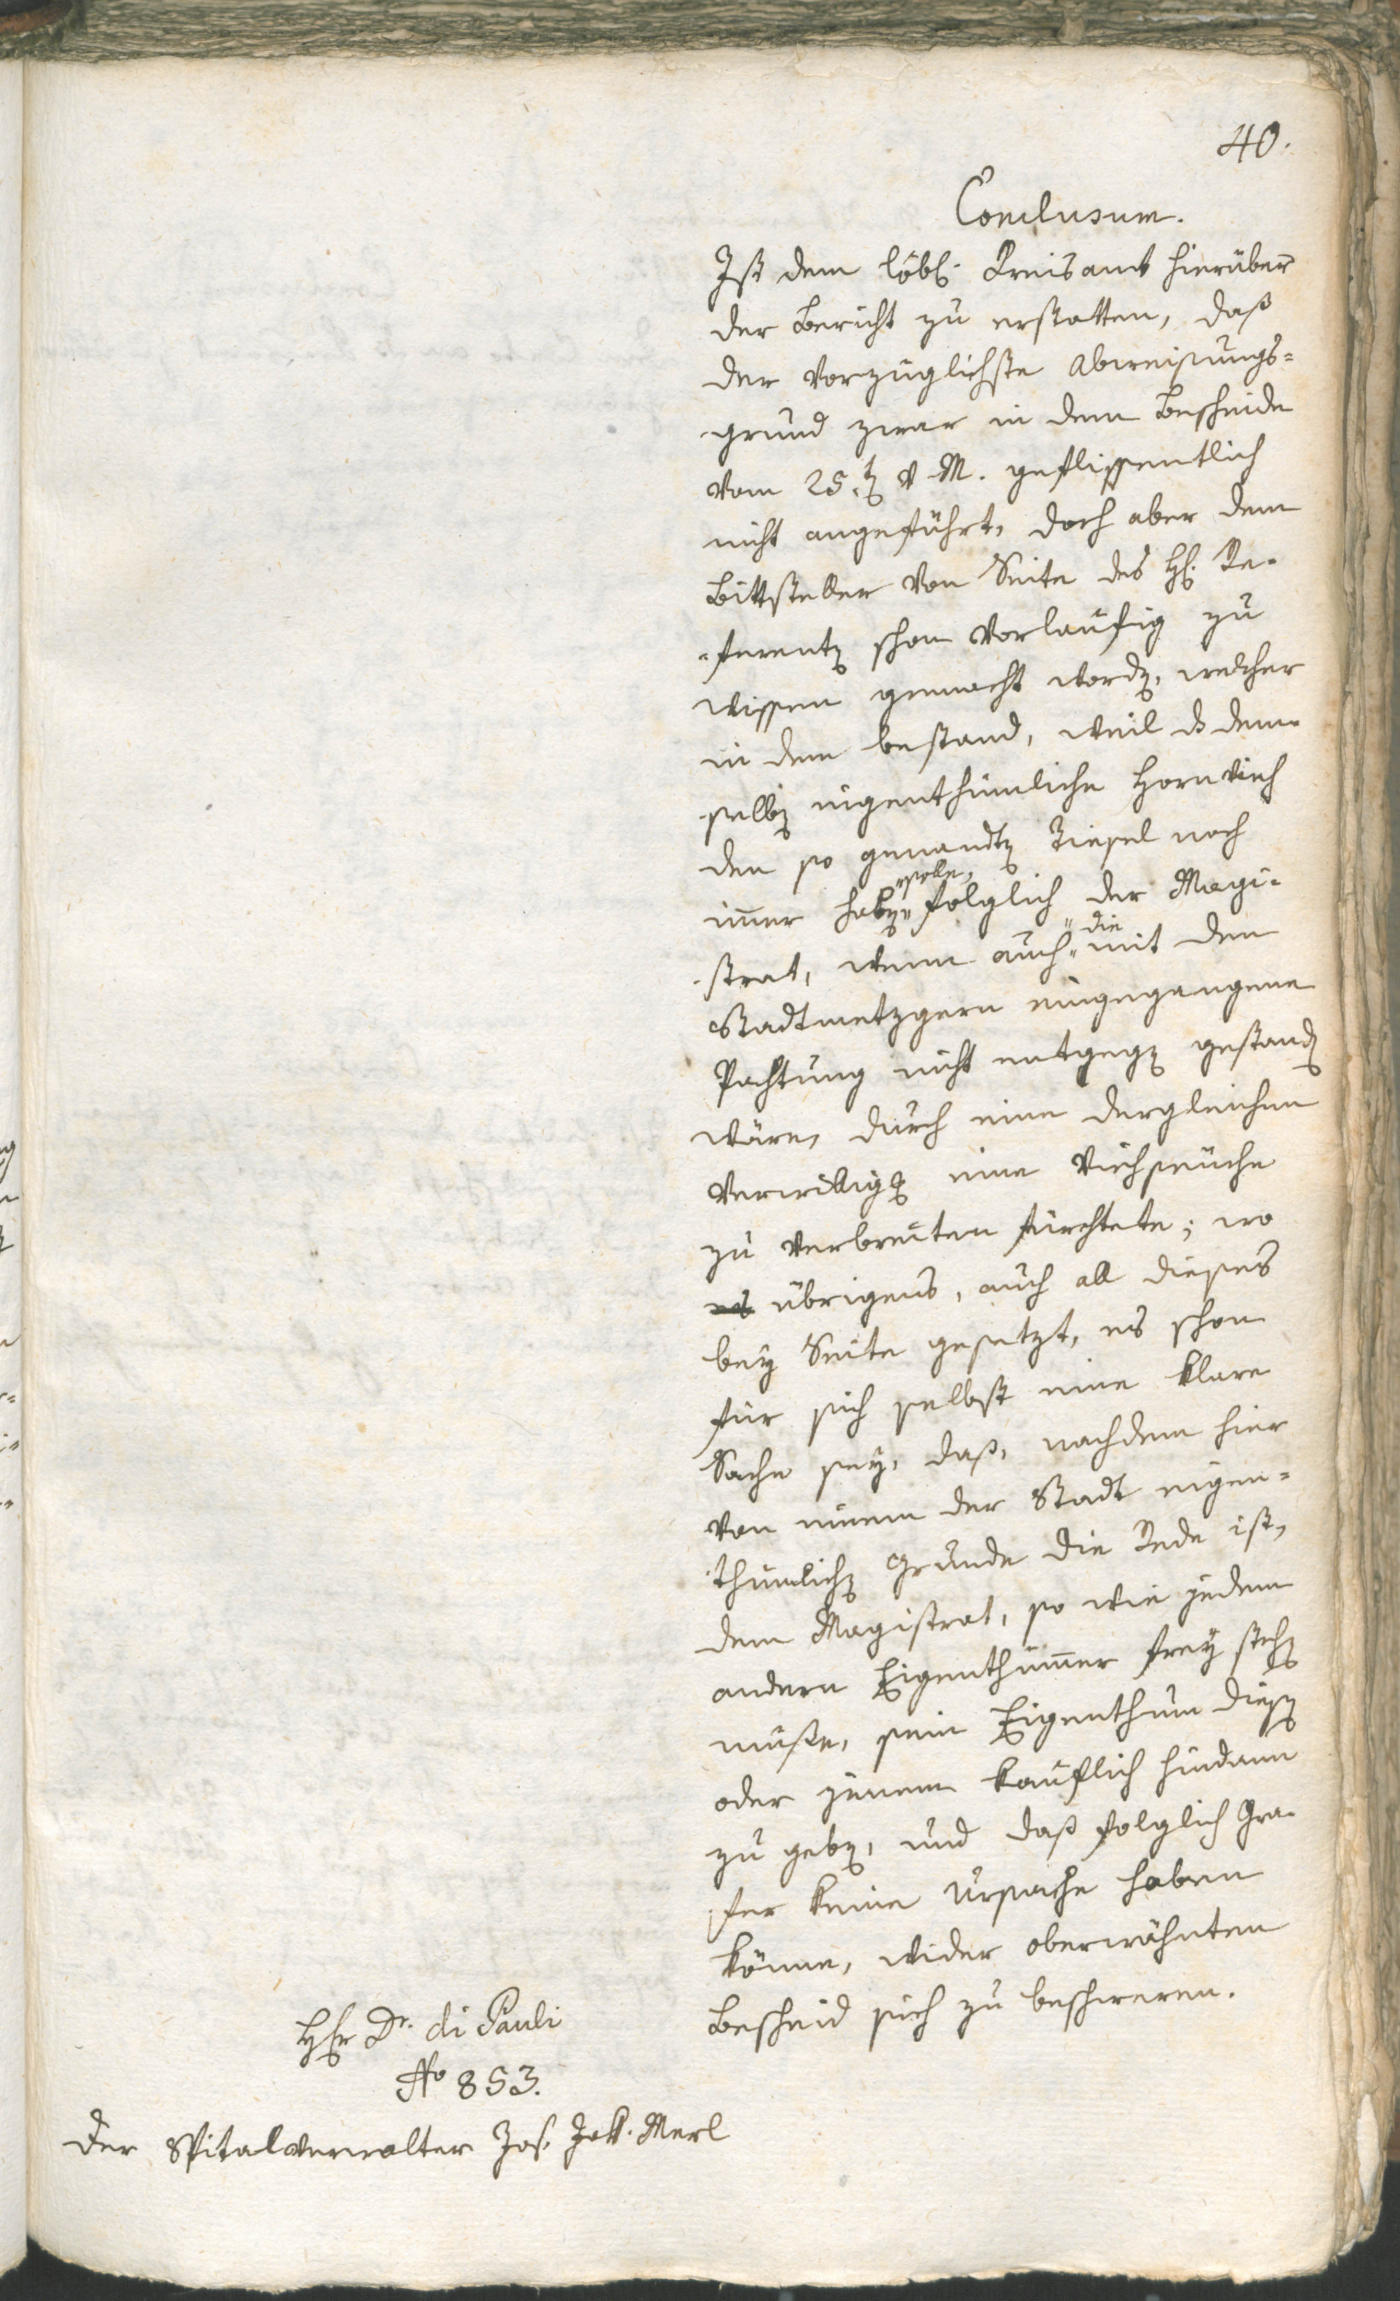 40.
Conclusum.
Ist dem löbl. Kreisamt hierüber
der Bericht zu erstatten, daß
der vorzüglichste Abweisungs=
grund zwar in dem Bescheide
vom 25.t v. M. geflissentlich
nicht angeführt, doch aber dem
Bittsteller von Seite des H. Re=
ferenten schon vorläufig zu
wissen gemacht worden, welcher
in dem bestand, weil das dem=
selben eigenthümliche Hornvieh
den so genandten Ziesel noch
immer haben "solle," folglich der Magi=
strat, wenn auch "die" mit den
Stadtmetzgern eingegangene
Pachtung nicht entgegen gestanden
wäre, durch eine dergleichen
Verwilligung eine Viehseüche
zu verbreiten fürchtete; wo
es übrigens, auch all dieses
bey Seite gesetzt, es schon
für sich selbst eine klare
Sache sey, daß, nachdem hier
von einem der Stadt eigen=
thümlichen Grunde die Rede ist,
dem Magistrat, so wie jedem
andern Eigenthümmer frey stehen
müsse, sein Eigenthum diesen
oder jenem kaüflich hindann
zu geben, und daß folglich Gra=
fer keine Ursache haben
könne, wider oberwähnten
Bescheid sich zu beschweren.
Hr Dr. di Pauli
No 853.
Der Spitalverwalter Jos. Jak. Merl